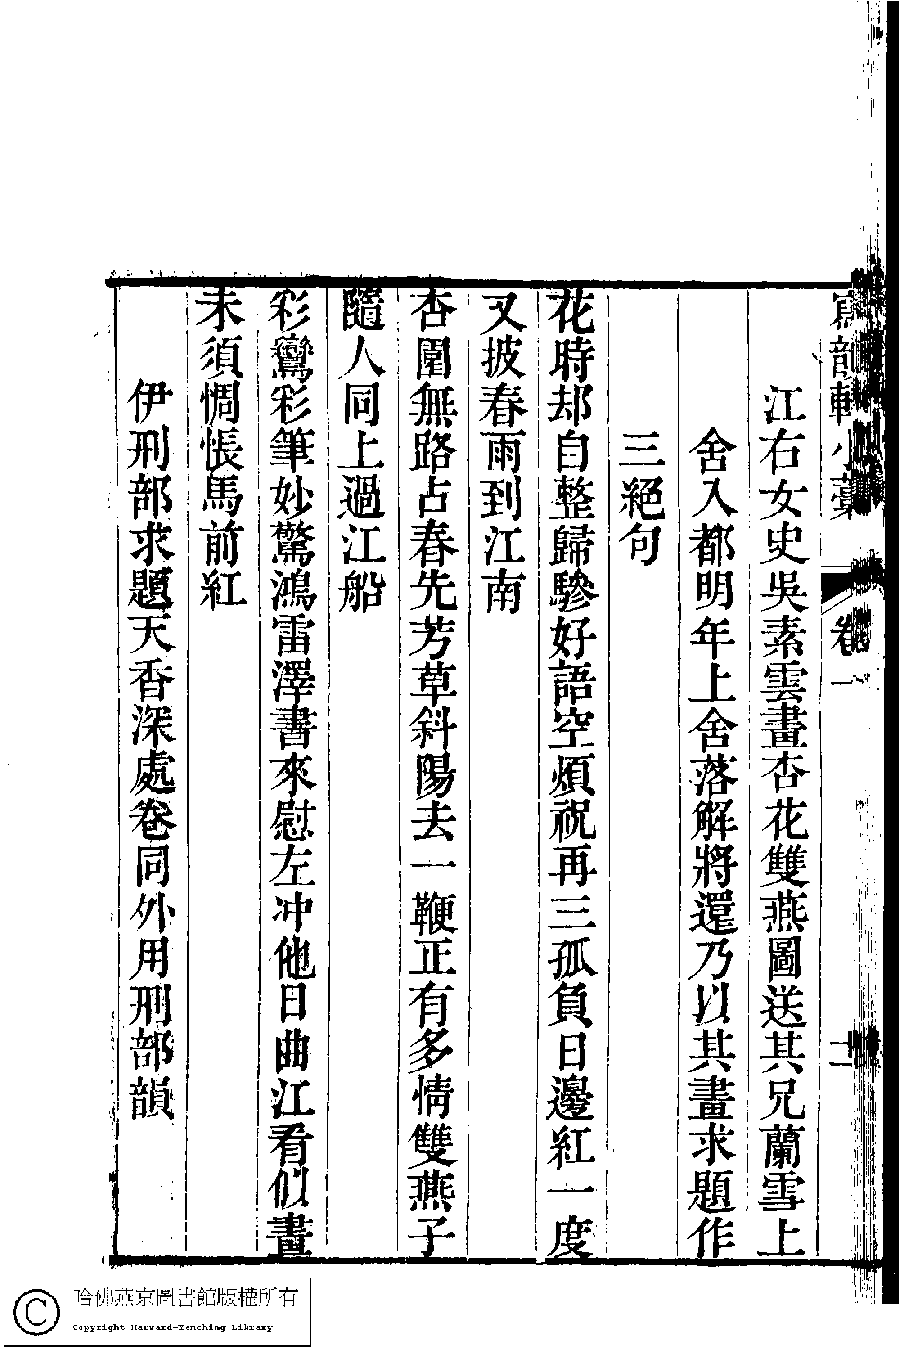 寫韻軒小藁 卷一 二
江右女史吳素雲畫杏花雙燕圖送其兄蘭雪上
舍入都明年上舍落解將還乃以其畫求題作
三絕句
花時却自整歸驂好語空煩祝再三孤負日邊紅一度
又披春雨到江南
杏園無路占春先芳草斜陽去一鞭正有多情雙燕子
隨人同上過江船
彩鸞彩筆妙驚鴻雷澤書來慰左冲他日曲江看似畫
未須惆悵馬前紅
伊刑部求題天香深處卷同外用刑部韻
哈佛燕京圖書館版權所有
Copyright Harvard-Yenching Library